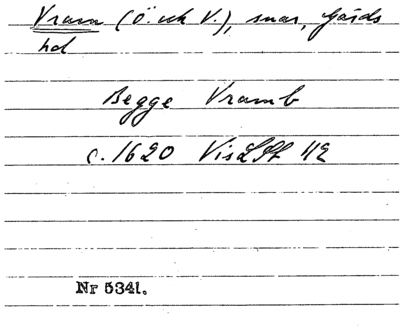 Vram (Ö. och V.), snar, Gärds
hd
Begge Vramb
c. 1620 VisLSt 112
Nr 5341.